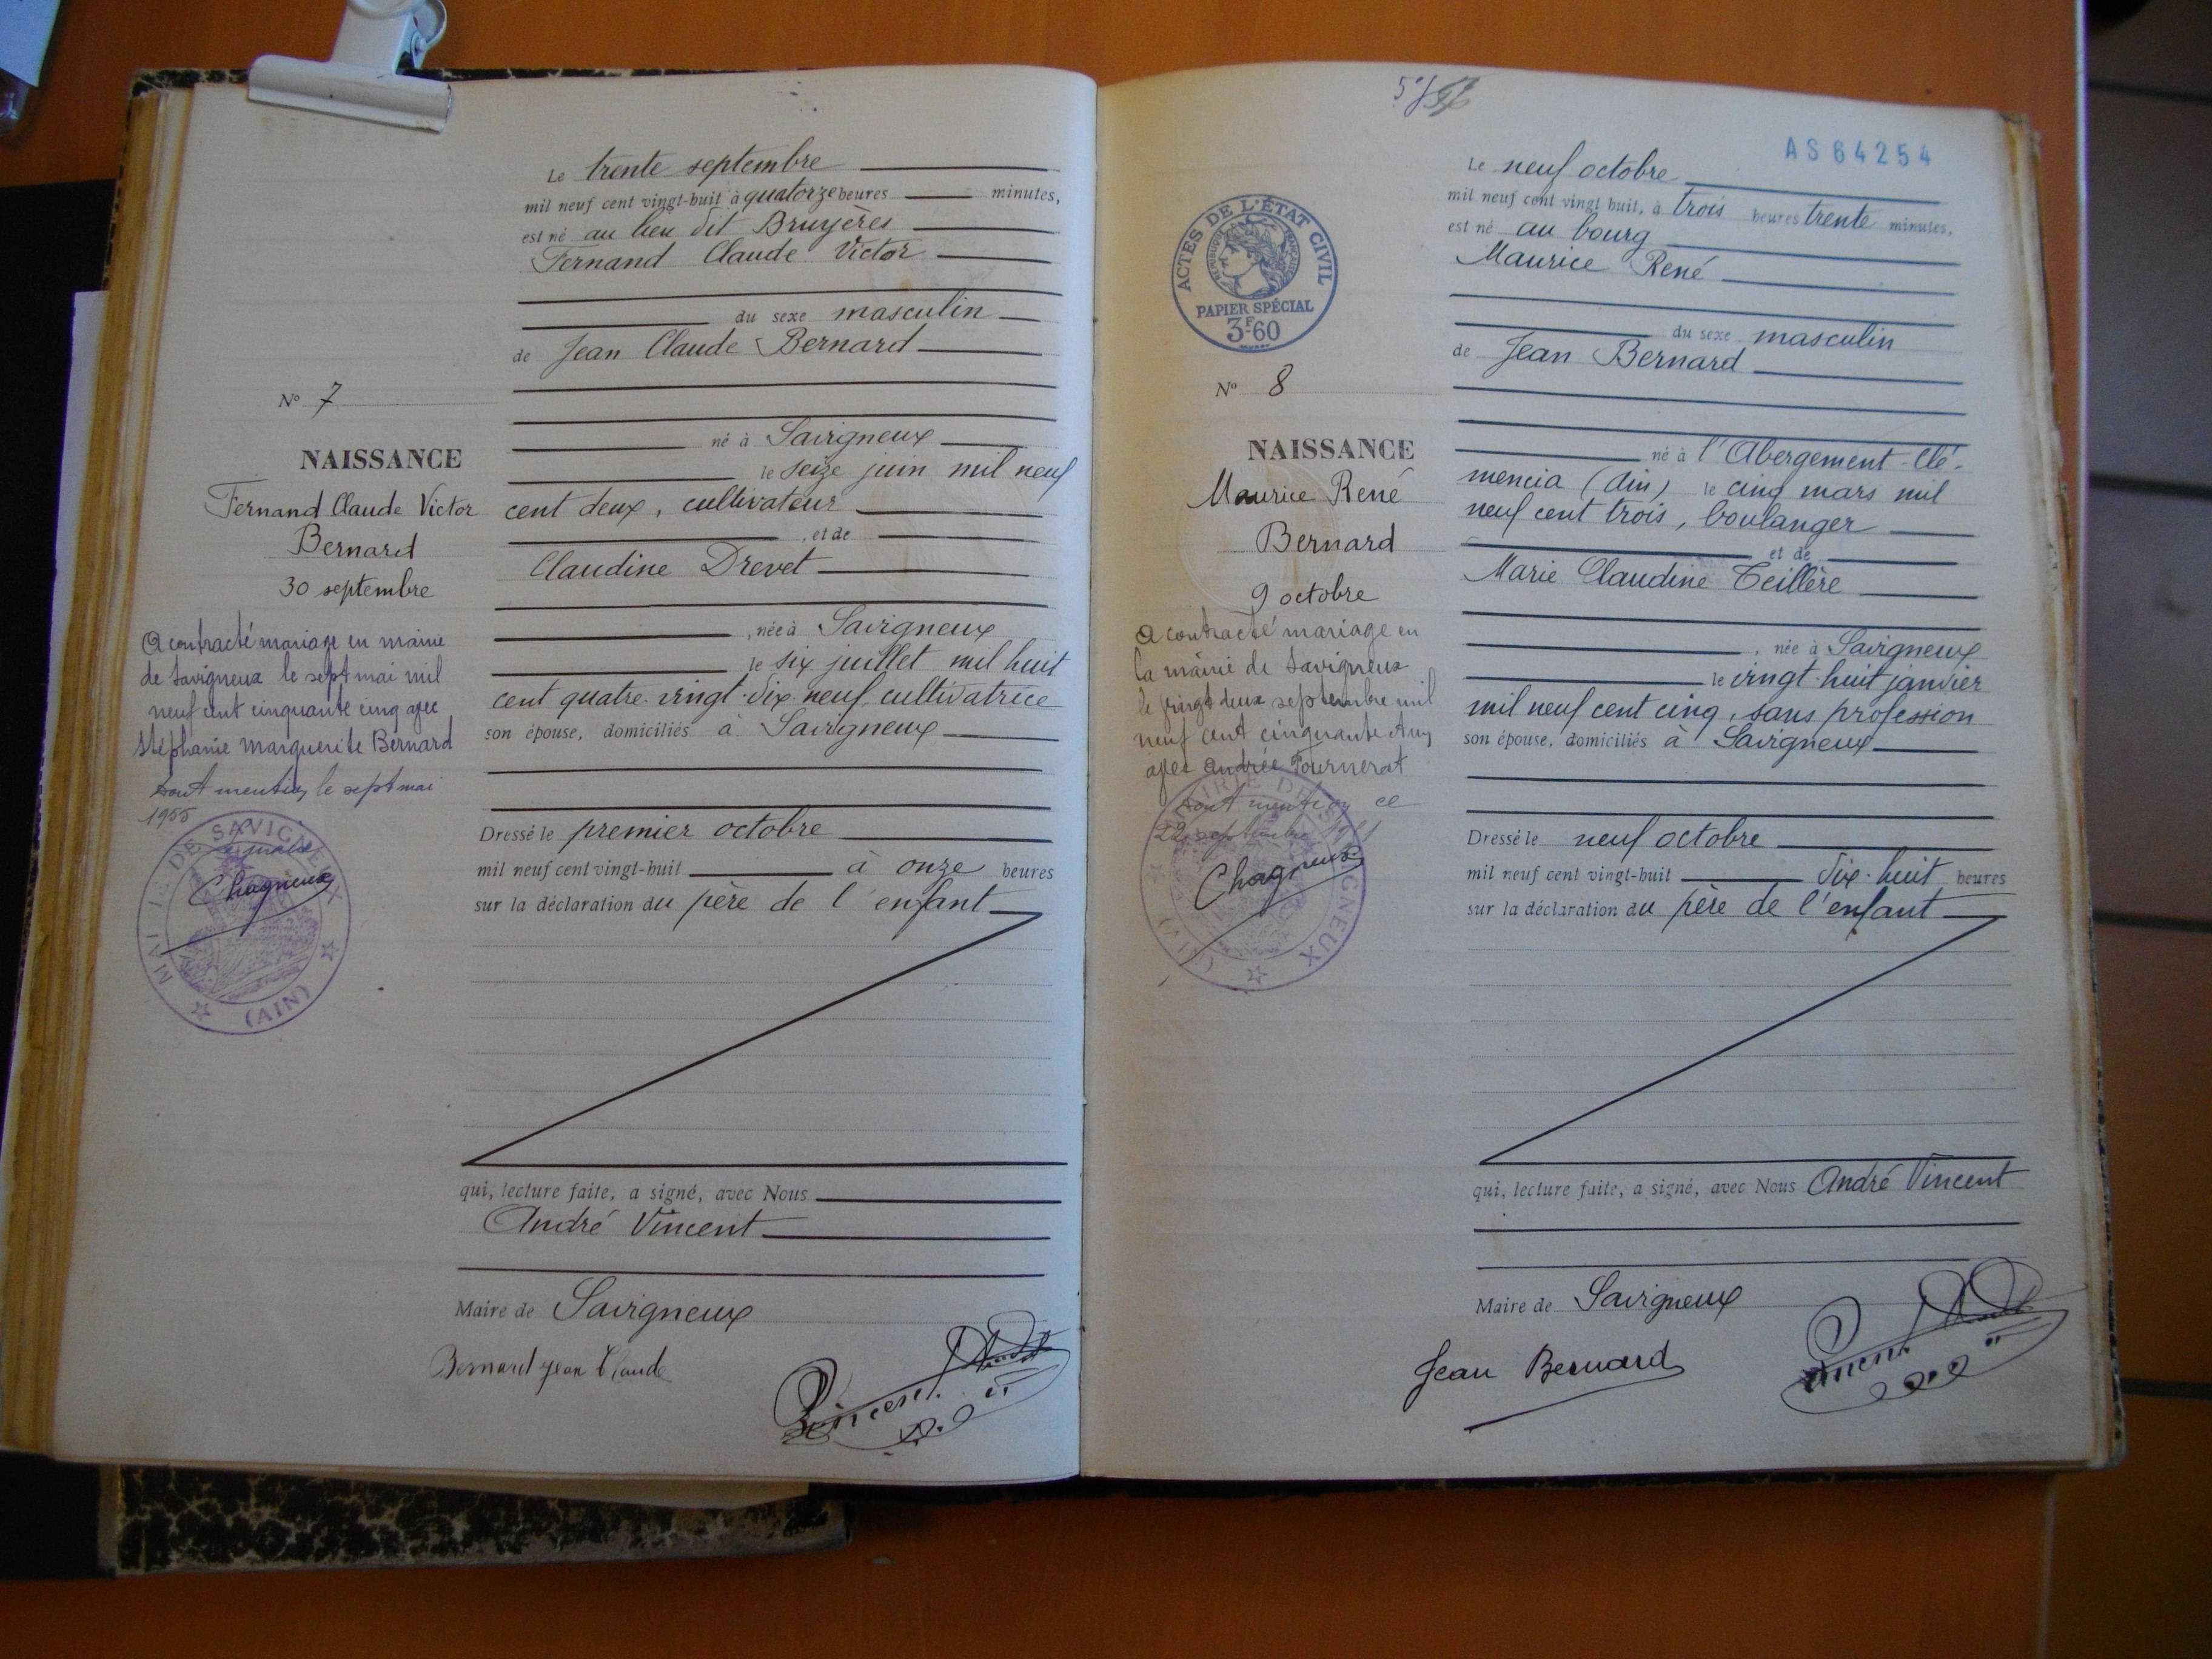 Le trente septembre
mil neuf cent vingt-huit à quatorze heures minutes,
est né au lieu dit Bruyères
Fernand Claude Victor
du sexe masculin
de Jean Claude Bernard
né à Savigneux
le seize juin mil neuf
cent deux, cultivateur
, et de
Claudine Drevet
, née à Savigneux
le six juillet mil huit
cent quatre-vingt-dix-neuf, cultivatrice
son épouse, domiciliés à Savigneux
Dressé le premier octobre
mil neuf cent vingt-huit à onze heures
sur la déclaration du père de l'enfant
qui, lecture faite, a signé, avec Nous
André Vincent
Maire de Savigneux
Bernard Jean Claude
Vincent
N° 7
NAISSANCE
Fernand Claude Victor
Bernard
30 septembre
A contracté mariage en mairie
de Savigneux le sept mai mil
neuf cent cinquante cinq avec
Stéphanie Marguerite Bernard
dont mention, le sept mai
1955
Chagneux
MAIRIE DE SAVIGNEUX
(AIN)
AS 64254
Le neuf octobre
mil neuf cent vingt huit, à trois heures trente minutes,
est né au bourg
Maurice René
du sexe masculin
de Jean Bernard
né à l'Abergement-Clé-
mencia (Ain) le cinq mars mil
neuf cent trois, boulanger
et de
Marie Claudine Teillère
, née à Savigneux
le vingt-huit janvier
mil neuf cent cinq, sans profession
son épouse, domiciliés à Savigneux
Dressé le neuf octobre
mil neuf cent vingt-huit dix-huit heures
sur la déclaration du père de l'enfant
qui, lecture faite, a signé, avec Nous André Vincent
Maire de Savigneux
Jean Bernard
Vincent
ACTES DE L'ÉTAT CIVIL
RÉPUBLIQUE FRANÇAISE
PAPIER SPÉCIAL
3F60
N° 8
NAISSANCE
Maurice René
Bernard
9 octobre
A contracté mariage en
la mairie de Savigneux
le vingt deux septembre mil
neuf cent cinquante
avec Andrée Fournerat
dont mention ce
22 septembre
Chagneux
MAIRIE DE SAVIGNEUX
(AIN)